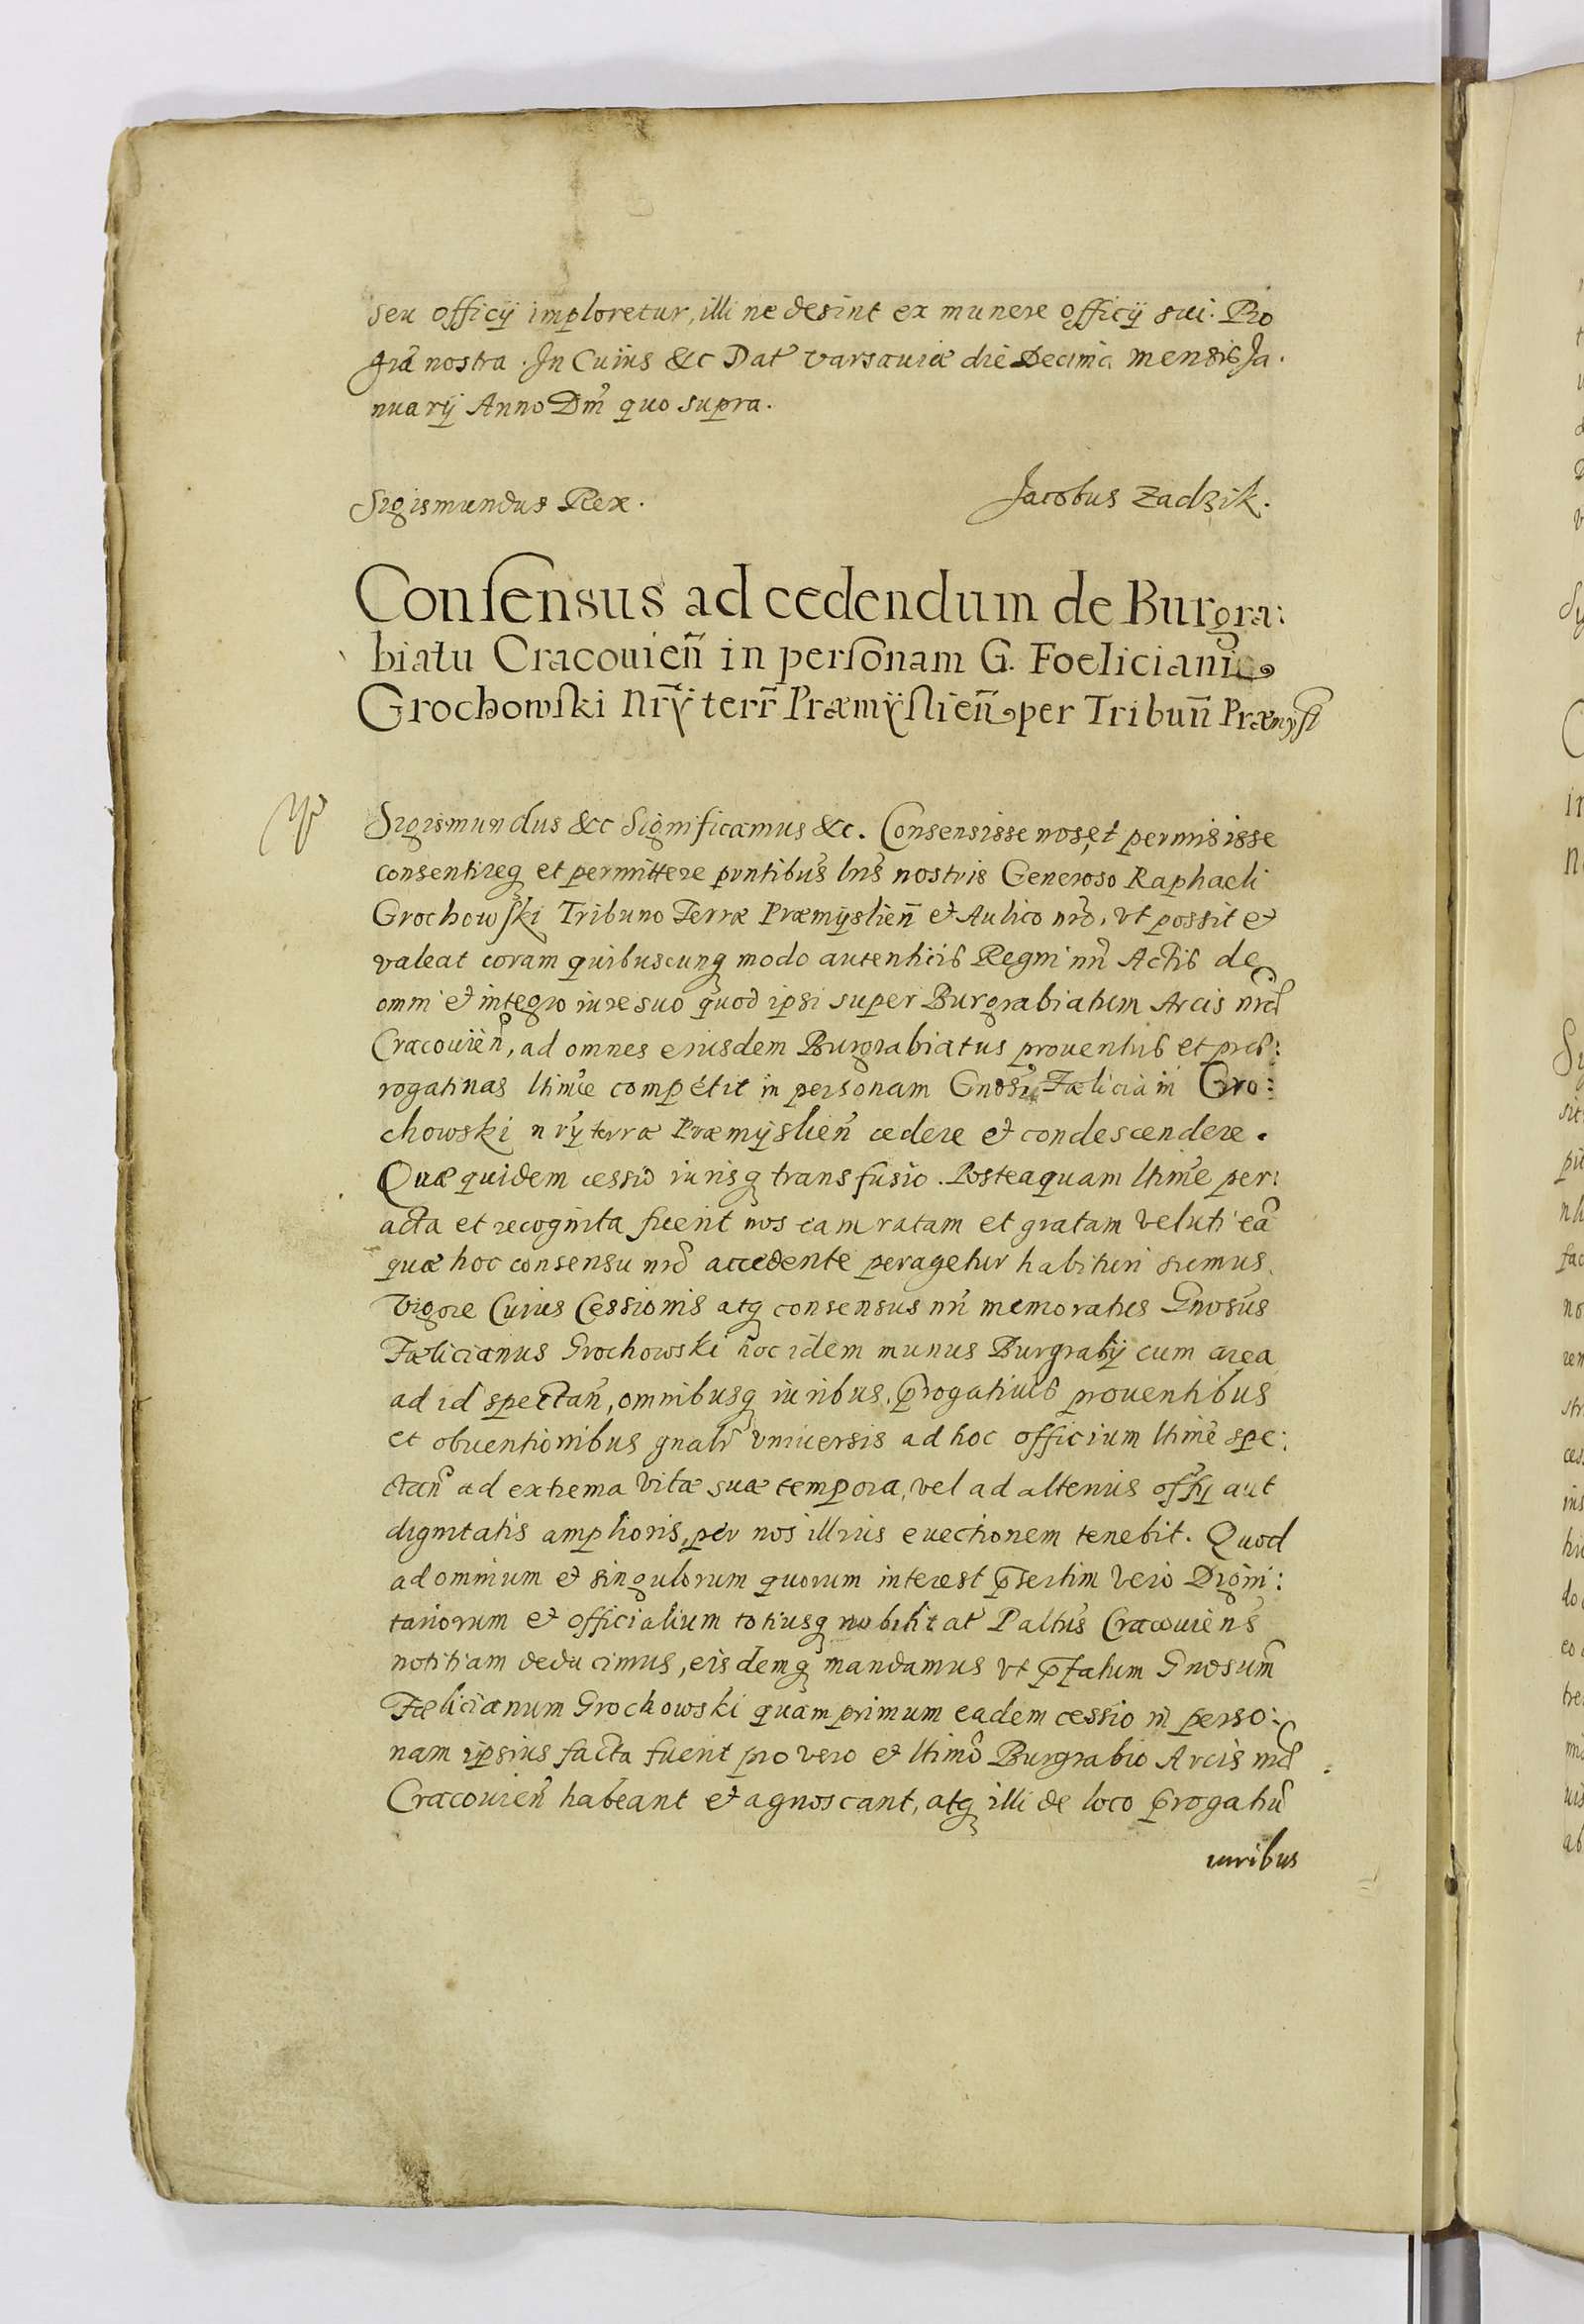 seu officÿ imploretur, illi ne desint ex munere officÿ sui. Pro
gra͠ nostra. In Cuius &c Dat͠ Varsauiæ die Decima mensis Ja.
nuarÿ Anno Dm͠ quo supra.
Sigismundus Rex.
Jacobus Zadzik.
Consensus ad cedendum de Burgra:
biatu Cracouien͠ in personam G. Foeliciani
Grochowski Nrÿ͠ terr͠ Præmÿslien͠ per Tribun͠ Præmysl
Sigismundus &c Significamus &c. Consensisse nos, et permisisse
consentireq et permittere pnntibus͠ lris͠ nostris Generoso Raphaeli
Grochowski Tribuno Terræ Præmÿslien͠ et Aulico nro͠, vt possit et
valeat coram quibuscunq modo autenticis Regni nri͠ Actis de
omni et integro iure suo quod ipsi super Burgrabiatum Arcis nræ͠
Cracouien͠, ad omnes eiusdem Burgrabiatus prouentus et præ:
rogatinas ltimæ͠ competit in personam Gnosi͠ Fæliciani Gro:
chowski nrÿ͠ terræ Præmÿslien͠ cedere et condescendere.
Quæ quidem cessio iurisq transfusio. Posteaquam ltime͠ per:
acta et recognita fuerit nos eam ratam et gratam veluti ea͠
quæ hoc consensu nro͠ accedente peragetur habituri sumus.
Vigore Cuius Cessionis atq consensus nri͠ memoratus Gnosus͠
Fælicianus Grochowski hoc idem munus Burgrabÿ cum area
ad id spectan͠, omnibusq iuribus, p͠rogatiuis prouentibus
et obuentionibus gnalr͠ vniuersis ad hoc officium ltime͠ spe:
ctan͠ ad extrema vitæ suæ tempora, vel ad alterius offÿ͠ aut
dignitatis amplioris, per nos illius euectionem tenebit. Quod
ad omnium et singulorum quorum interest p͠sertim vero Digni:
tariorum et officialium totiusq nobilitat͠ Paltus͠ Cracouiens͠
notitiam deducimus, eisdemq mandamus vt p͠fatum Gnosum͠
Fælicianum Grochowski quamprimum eadem cessio in perso:
nam ipsius facta fuerit pro vero et ltimo͠ Burgrabio Arcis nræ͠
Cracouien͠ habeant et agnoscant, atq illi de loco p͠rogatiu͠
iuribus